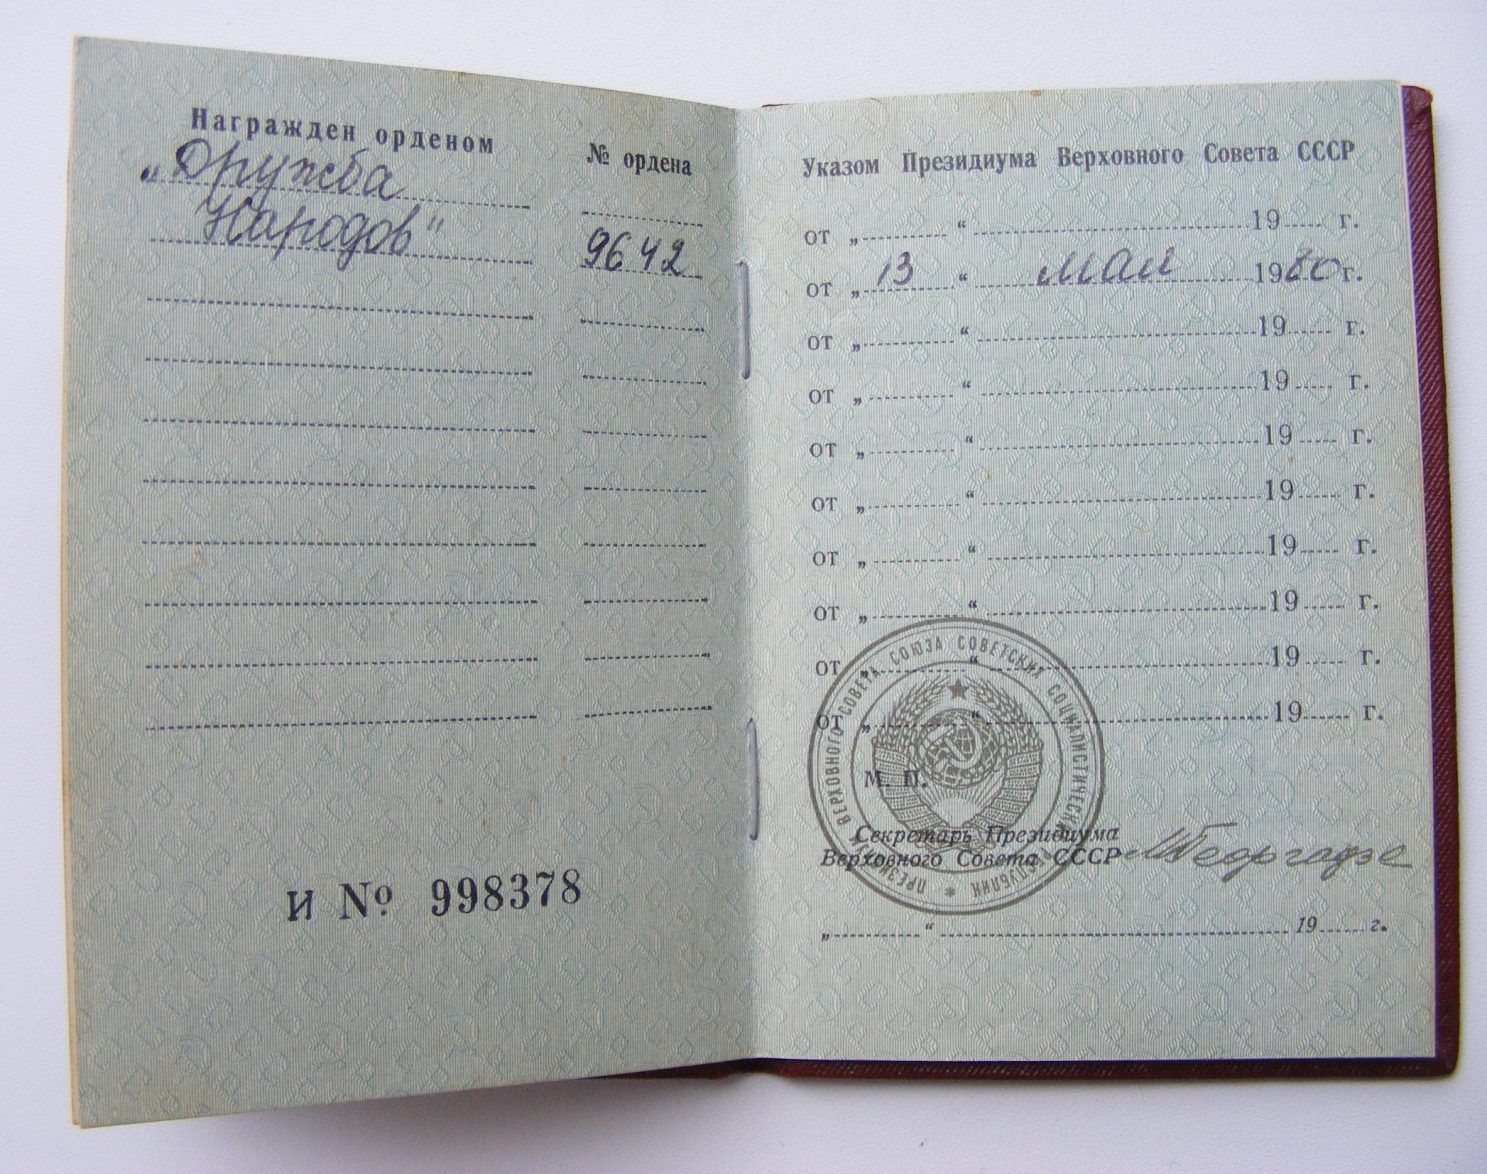 Награжден орденом № ордена
„Дружба
Народов" 9642
и № 998378
Указом Президиума Верховного Совета СССР
от „ “ 19 г.
от „ 13 “ мая 1980 г.
от „ “ 19 г.
от „ “ 19 г.
от „ “ 19 г.
от „ “ 19 г.
от „ “ 19 г.
от „ “ 19 г.
от „ “ 19 г.
от „ “ 19 г.
ПРЕЗИДИУМ ВЕРХОВНОГО СОВЕТА СОЮЗА СОВЕТСКИХ СОЦИАЛИСТИЧЕСКИХ РЕСПУБЛИК *
М. П.
Секретарь Президиума
Верховного Совета СССР МГеоргадзе
„ “ 19 г.